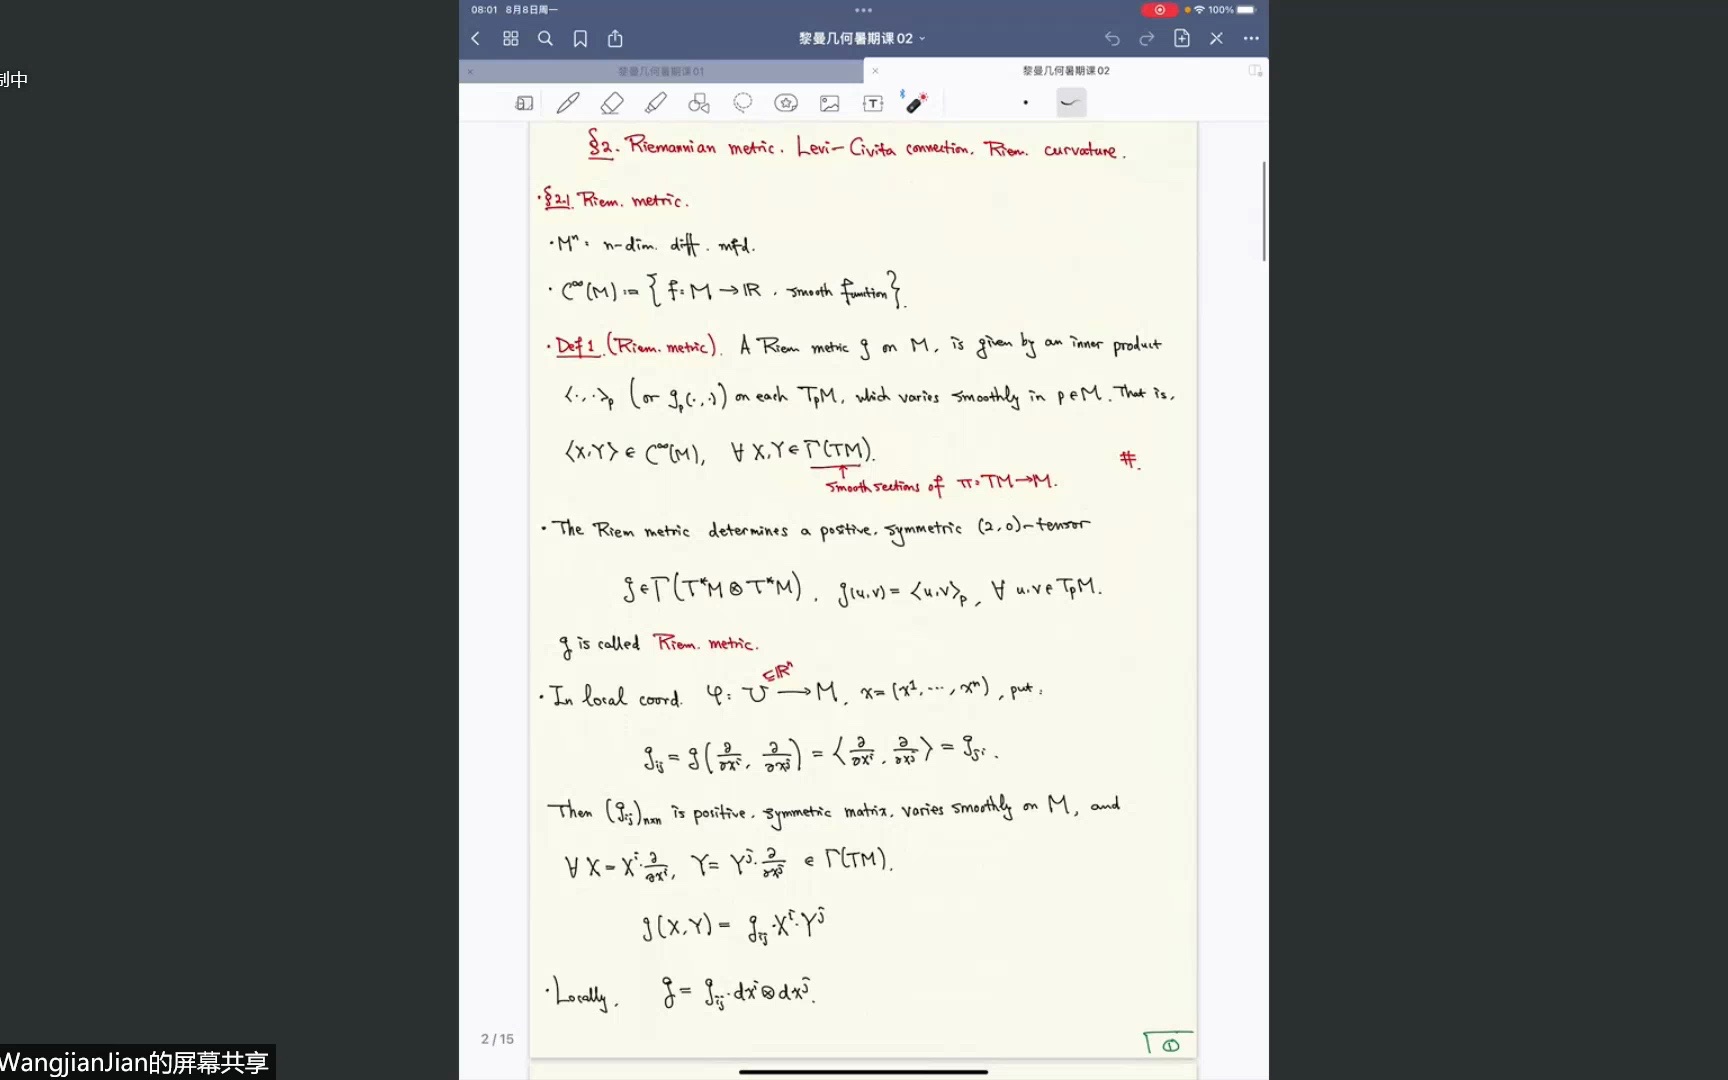 08:01 8月8日周一
100%
制中
黎曼几何暑期课 02
黎曼几何暑期课 01
黎曼几何暑期课 02
§2. Riemannian metric. Levi-Civita connection. Riem. curvature.
·§2.1 Riem. metric.
·Mⁿ: n-dim. diff. mfd.
·C^∞(M) := {f: M → ℝ, smooth function}.
·Def 1 (Riem. metric). A Riem metric g on M, is given by an inner product
⟨·,·⟩_p (or g_p(·,·)) on each T_pM, which varies smoothly in p∈M. That is,
⟨X,Y⟩ ∈ C^∞(M), ∀ X,Y ∈ Γ(TM). #.
↑
smooth sections of π: TM→M.
·The Riem metric determines a positive, symmetric (2,0)-tensor
g∈Γ(T*M ⊗ T*M), g(u,v) = ⟨u,v⟩_p, ∀ u,v∈T_pM.
g is called Riem. metric.
⊆ℝⁿ
·In local coord. φ: U → M, x=(x¹,⋯,xⁿ), put:
g_ij = g(∂/∂xⁱ, ∂/∂xʲ) = ⟨∂/∂xⁱ, ∂/∂xʲ⟩ = g_ji.
Then (g_ij)_n×n is positive, symmetric matrix, varies smoothly on M, and
∀ X = Xⁱ·∂/∂xⁱ, Y = Yʲ·∂/∂xʲ ∈ Γ(TM).
g(X,Y) = g_ij·Xⁱ·Yʲ
·Locally, g = g_ij·dxⁱ⊗dxʲ.
2 / 15
①
WangjianJian的屏幕共享